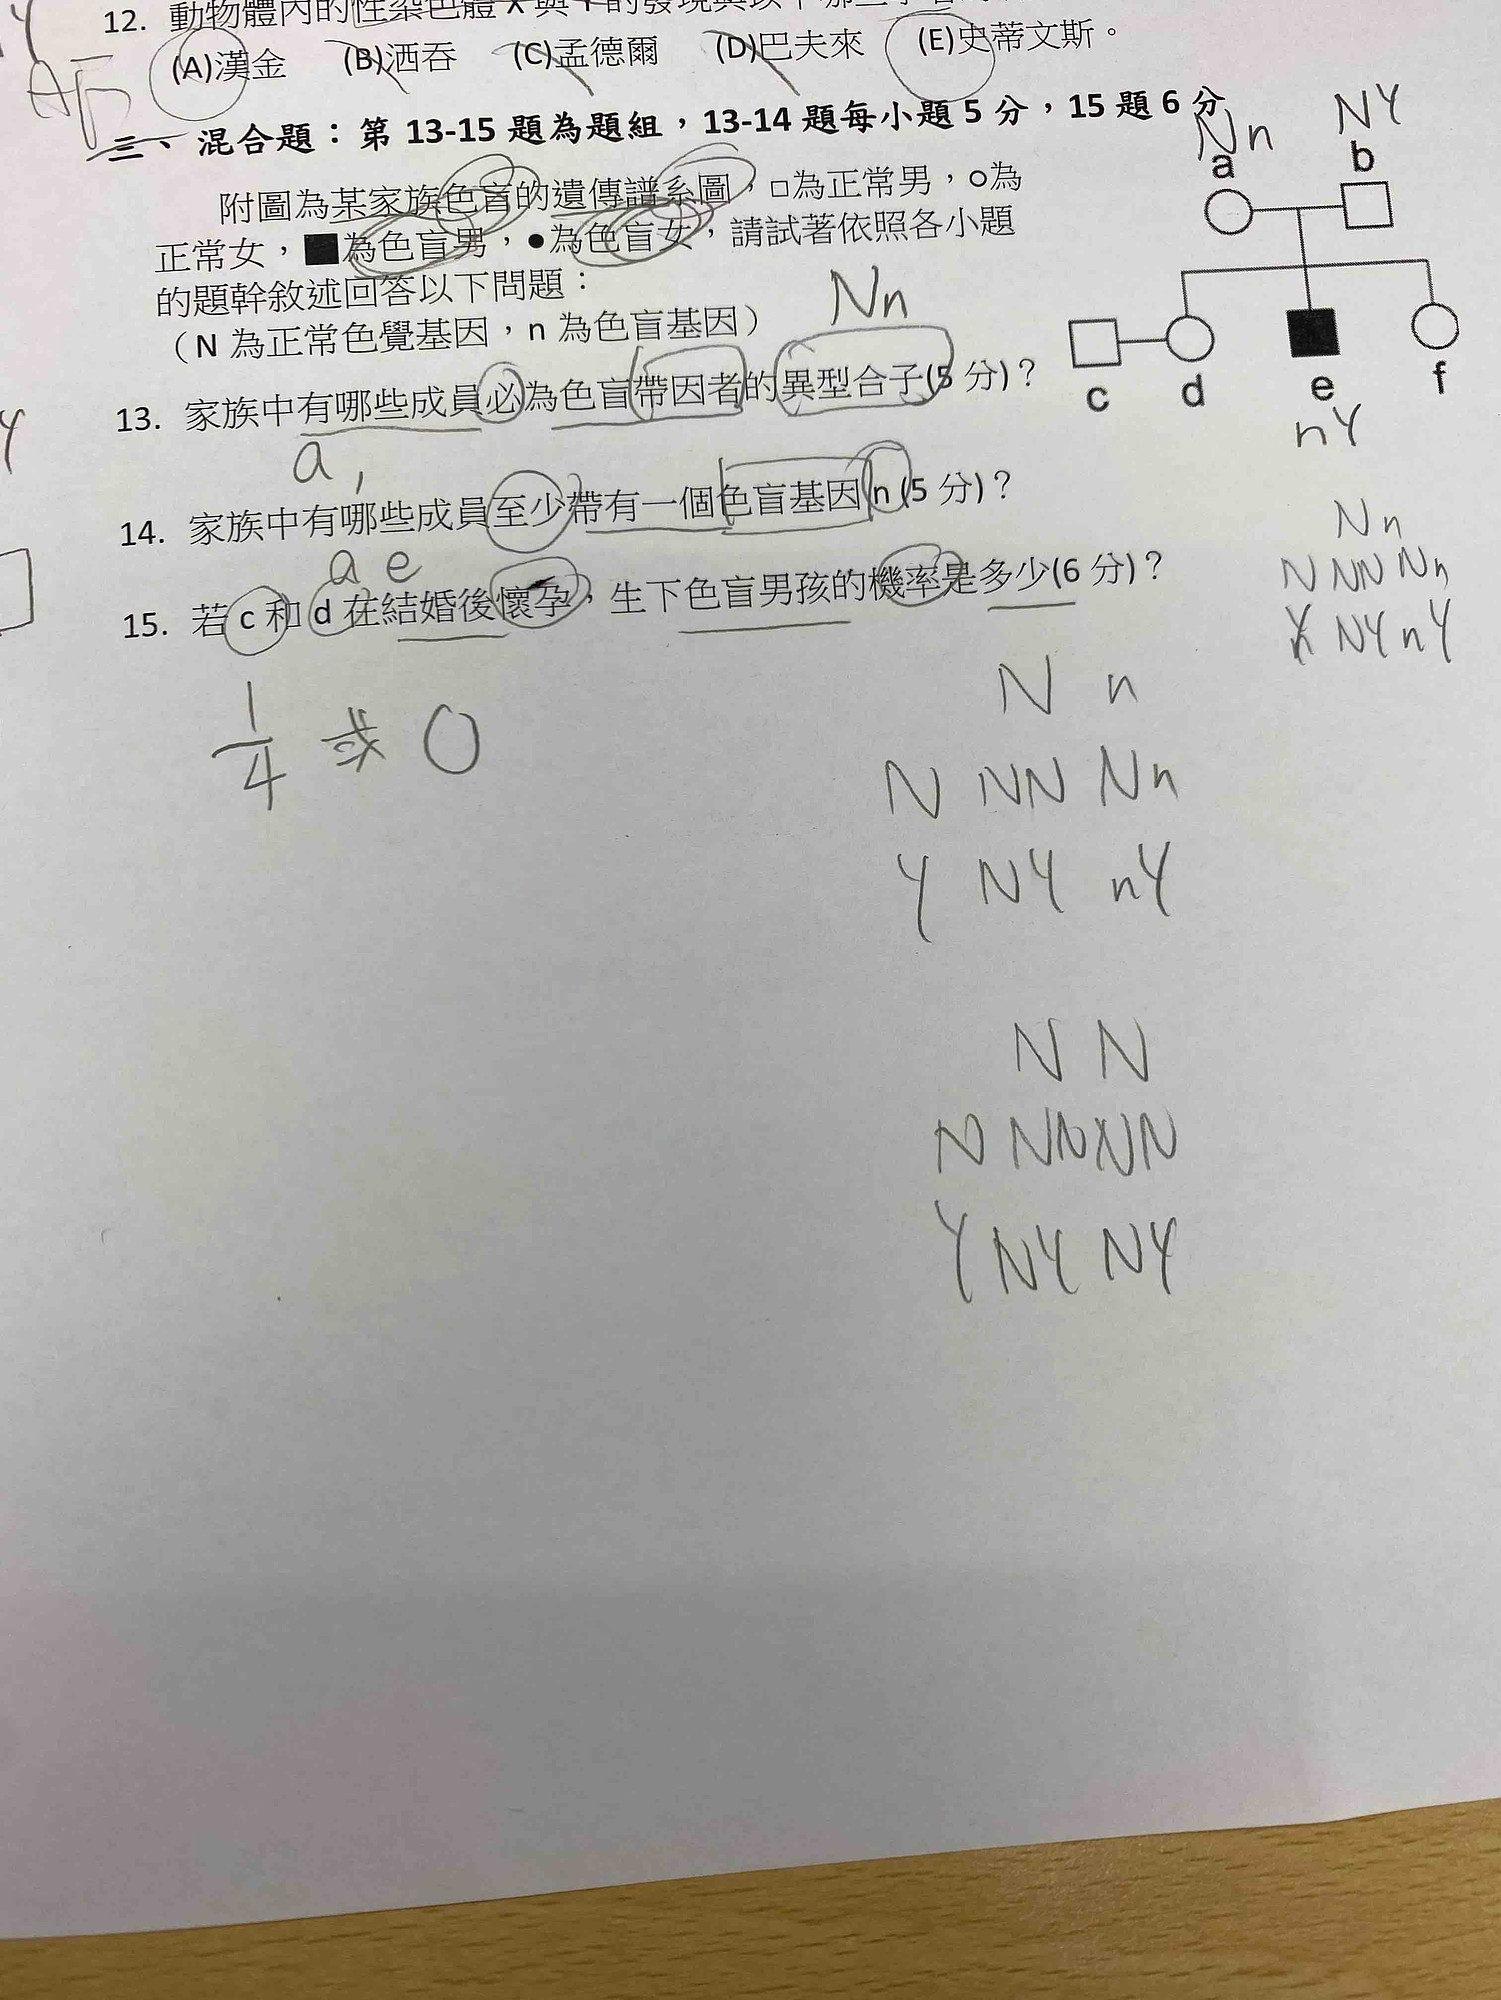 12. 動物體內的性染色體 X 與 Y 的發現與以下哪些學者
(A)漢金 (B)洒吞 (C)孟德爾 (D)巴夫來 (E)史蒂文斯。
三、混合題：第 13-15 題為題組，13-14 題每小題 5 分，15 題 6 分
Nn NY
a b
附圖為某家族色盲的遺傳譜系圖，□為正常男，○為
正常女，■為色盲男，●為色盲女，請試著依照各小題
的題幹敘述回答以下問題：
（N 為正常色覺基因，n 為色盲基因）
Nn
c d e f
nY
13. 家族中有哪些成員必為色盲帶因者的異型合子(5 分)？
a,
14. 家族中有哪些成員至少帶有一個色盲基因 n (5 分)？
a e
15. 若 c 和 d 在結婚後懷孕，生下色盲男孩的機率是多少(6 分)？
N n
N NN Nn
Y NY nY
1/4 或 0
N n
N NN Nn
Y NY nY
N N
N NN NN
Y NY NY